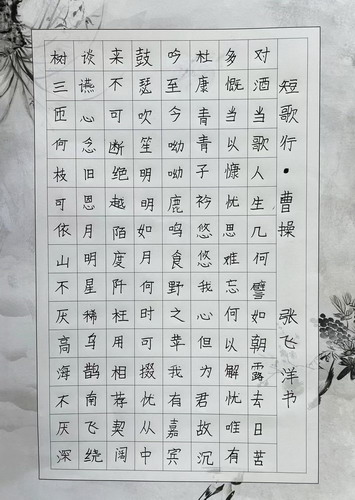 短歌行·曹操 张飞洋书
对酒当歌人生几何譬如朝露去日苦
多慨当以慷忧思难忘何以解忧唯有
杜康青青子衿悠悠我心但为君故沉
吟至今呦呦鹿鸣食野之苹我有嘉宾
鼓瑟吹笙明明如月何时可掇忧从中
来不可断绝越陌度阡枉用相荐契阔
谈讌心念旧恩月明星稀乌鹊南飞绕
树三匝何枝可依山不厌高海不厌深